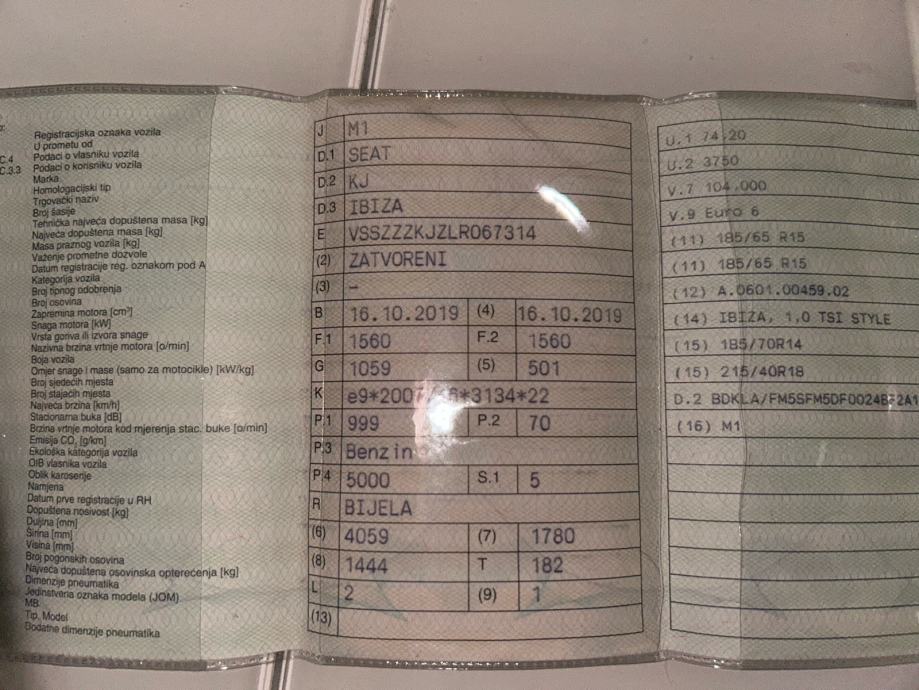 C.4
C.3.3
Registracijska oznaka vozila
U prometu od
Podaci o vlasniku vozila
Podaci o korisniku vozila
Marka
Homologacijski tip
Trgovački naziv
Broj šasije
Tehnička najveća dopuštena masa [kg]
Najveća dopuštena masa [kg]
Masa praznog vozila [kg]
Važenje prometne dozvole
Datum registracije reg. oznakom pod A
Kategorija vozila
Broj tipnog odobrenja
Broj osovina
Zapremina motora [cm³]
Snaga motora [kW]
Vrsta goriva ili izvora snage
Nazivna brzina vrtnje motora [o/min]
Boja vozila
Omjer snage i mase (samo za motocikle) [kW/kg]
Broj sjedećih mjesta
Broj stajaćih mjesta
Najveća brzina [km/h]
Stacionarna buka [dB]
Brzina vrtnje motora kod mjerenja stac. buke [o/min]
Emisija CO₂ [g/km]
Ekološka kategorija vozila
OIB vlasnika vozila
Oblik karoserije
Namjena
Datum prve registracije u RH
Dopuštena nosivost [kg]
Duljina [mm]
Širina [mm]
Visina [mm]
Broj pogonskih osovina
Najveća dopuštena osovinska opterećenja [kg]
Dimenzije pneumatika
Jedinstvena oznaka modela (JOM)
MB
Tip, Model
Dodatne dimenzije pneumatika
J M1
D.1 SEAT
D.2 KJ
D.3 IBIZA
E VSSZZZKJZLR067314
(2) ZATVORENI
(3) –
B 16.10.2019 (4) 16.10.2019
F.1 1560 F.2 1560
G 1059 (5) 501
K
P.1 999 P.2 70
P.3 Benzin
P.4 5000 S.1 5
R BIJELA
(6) 4059 (7) 1780
(8) 1444 T 182
L 2 (9) 1
(13)
U.1 74,20
U.2 3750
V.7 104,000
V.9 Euro 6
(11) 185/65 R15
(11) 185/65 R15
(12) A.0601.00459.02
(14) IBIZA, 1,0 TSI STYLE
(15) 185/70R14
(15) 215/40R18
D.2
(16) M1